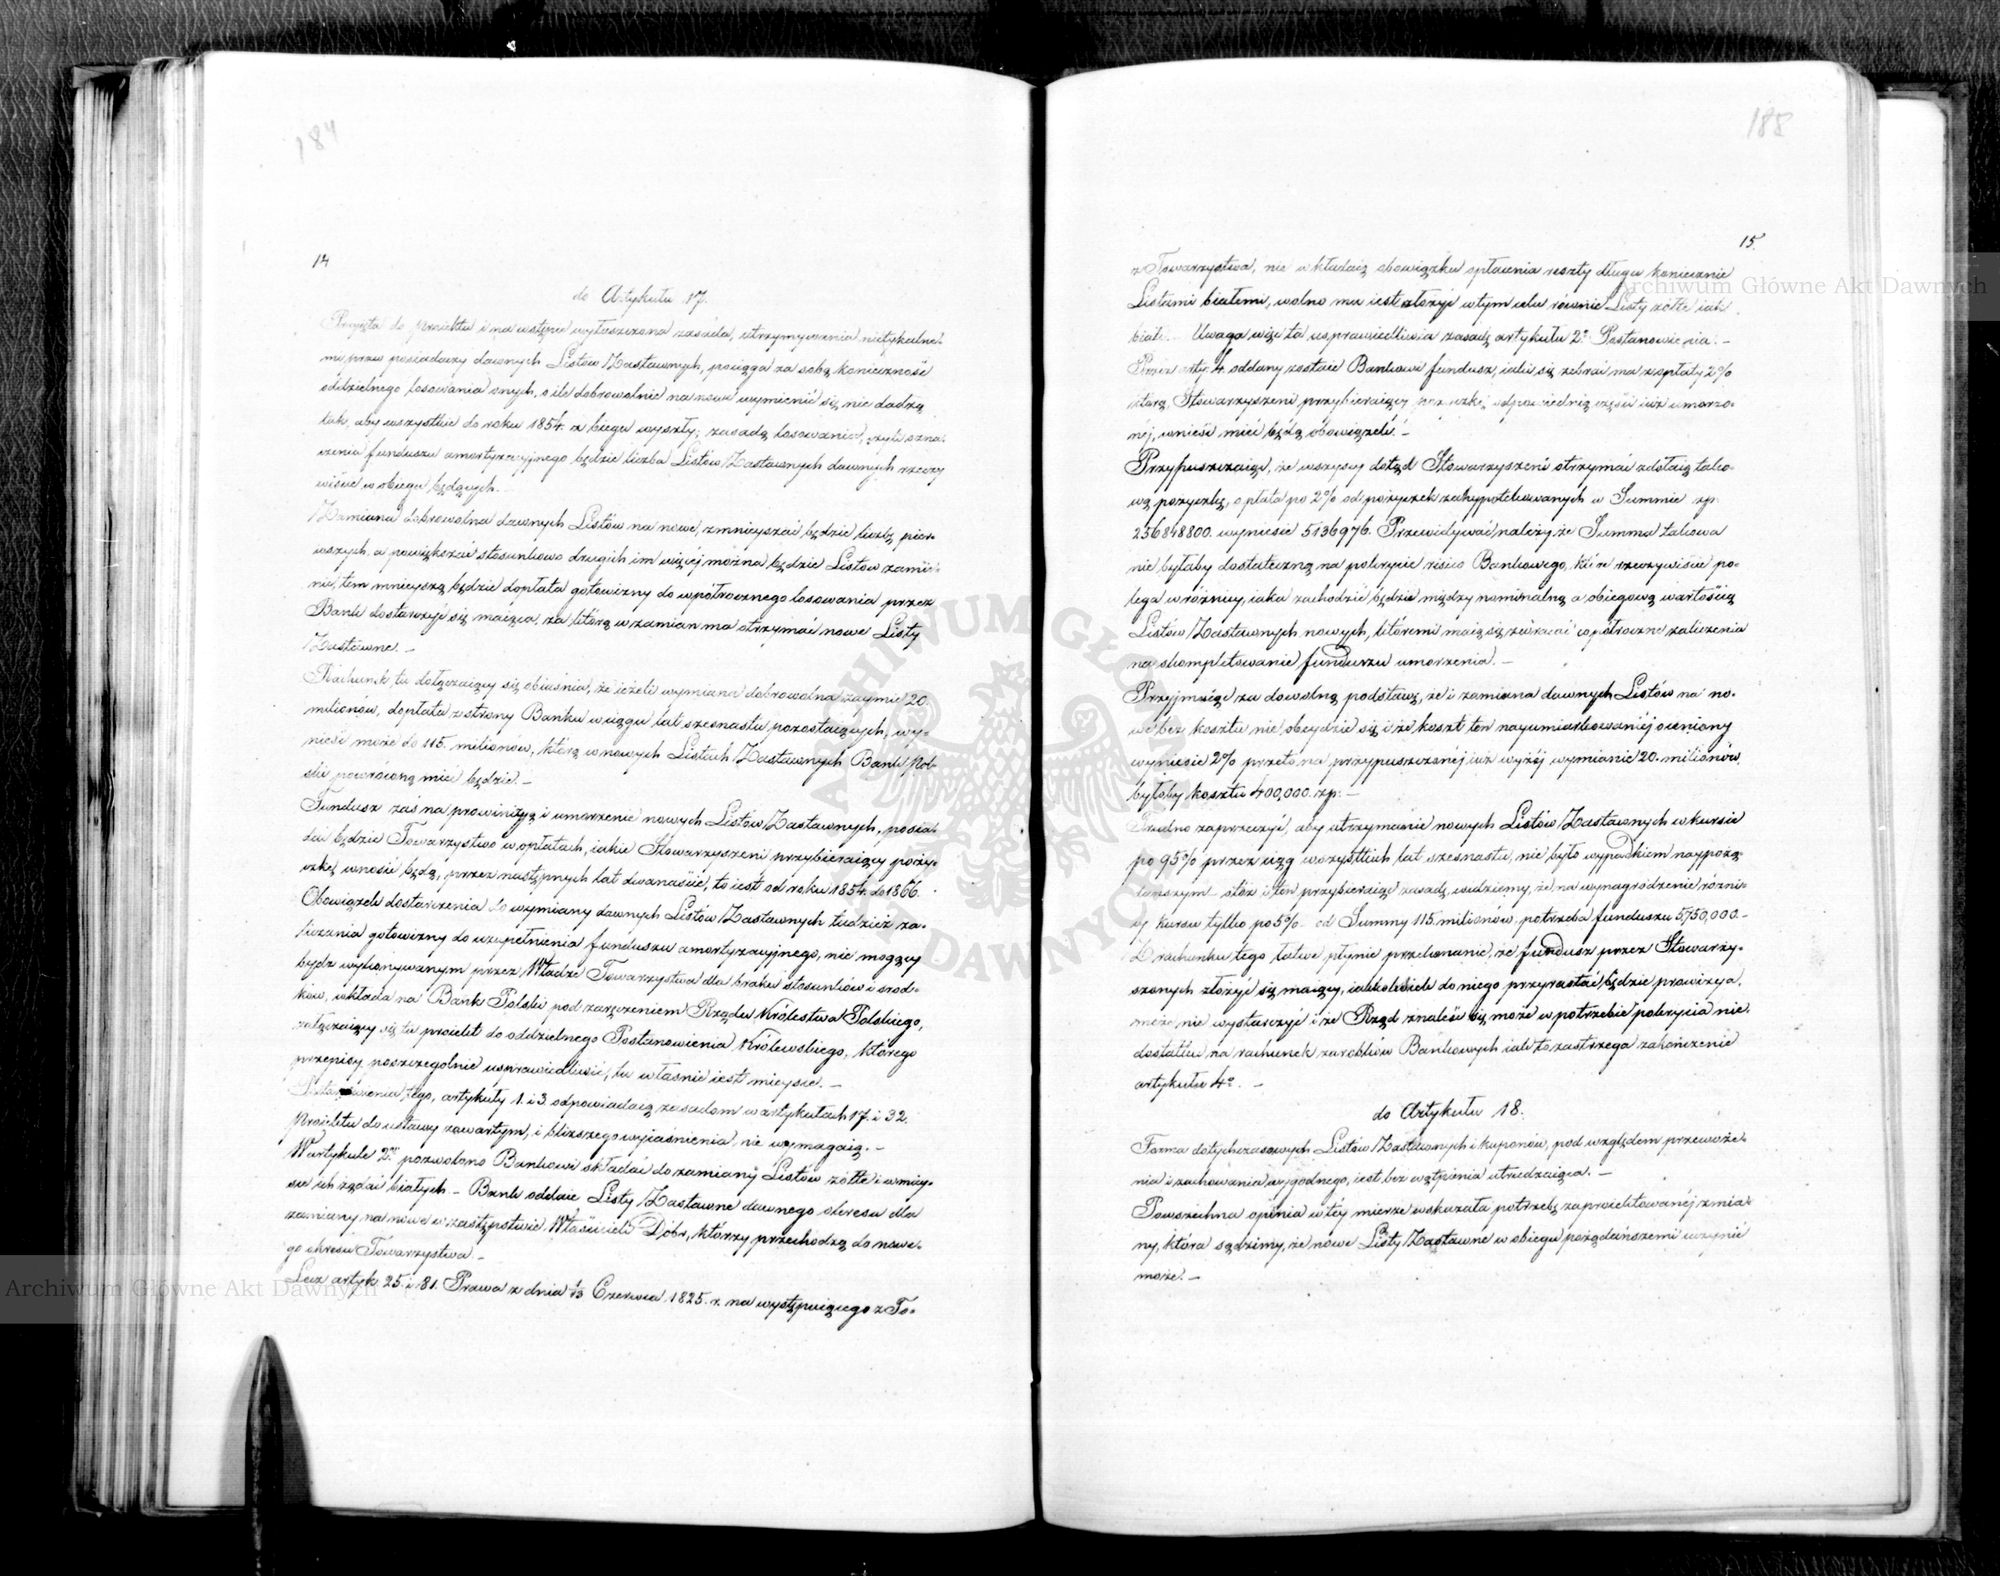 184
14
do Artykułu 17.
Przyjęta do proiektu i na wstępie wyłuszczona zasada, utrzymywania nietykalne-
mi praw posiadaczy dawnych Listów Zastawnych, pociąga za sobą konieczność
oddzielnego losowania onych, o ile dobrowolnie na nowe wymienić się nie dadzą
tak, aby wszystkie do roku 1854. z biegu wyszły; zasadą losowania, czyli ozna-
czenia funduszu amortyzacyjnego będzie liczba Listów Zastawnych dawnych rzeczy
wiście w obiegu będących.
Zamiana dobrowolna dawnych Listów na nowe, zmnieyszać będzie liczbę pier-
wszych a powiększać stosunkowo drugich im więcej można będzie Listów zamie-
nić, tem mnieyszą będzie dopłata gotowizny do wpółrocznego losowania przez
Bank dostarczyć się maiąca, za którą w zamian ma otrzymać nowe Listy
Zastawne. –
Rachunek tu dołączaiący się obiaśnia, że ieżeli wymiana dobrowolna zaymie 20.
milionów, dopłata z strony Banku w ciągu lat szesnastu pozostaiących, wy-
nieść może do 115. milionów, którą w nowych Listach Zastawnych Bank Pol-
ski powróconą mieć będzie. –
Fundusz zaś na prowizyą i umorzenie nowych Listów Zastawnych, posia-
dać będzie Towarzystwo w opłatach, iakie Stowarzyszeni przybieraiący poży-
czkę wnosić będą, przez następnych lat dwanaście, to iest od roku 1854. do 1866.
Obowiązek dostarczenia do wymiany dawnych Listów Zastawnych tudzież za-
liczania gotowizny do uzupełnienia funduszu amortyzacyjnego, nie mogący
bydź wykonywanym przez Władze Towarzystwa dla braku stosunków i srod-
ków, wkłada na Bank Polski pod zaręczeniem Rządu Królestwa Polskiego,
załączaiący się tu proiekt do oddzielnego Postanowienia Królewskiego, którego
przepisy poszczególnie usprawiedliwić, tu właśnie iest mieysce. –
Postanowienia tego, artykuły 1. i 3. odpowiadaią zasadom w artykułach 17. i 32.
Proiektu do ustawy zawartym, i bliższego wyiaśnienia nie wymagaią. –
W artykule 2im pozwolono Bankowi składać do zamiany Listów żółte i w miey-
sce ich żądać białych. – Bank oddaie Listy Zastawne dawnego okresu dla
zamiany na nowe w zastępstwie Właścicieli Dóbr, którzy przechodzą do nowe-
go okresu Towarzystwa. –
Lecz artyk. 25. i 81. Prawa z dnia 1/13 Czerwca 1825. r. na występuiącego z To-
185
15.
z Towarzystwa, nie wkładaią obowiązku opłacenia reszty długu koniecznie
Listami białemi, wolno mu iest złożyć w tym celu równie Listy żółte iak
białe. – Uwaga więc ta usprawiedliwia zasadę artykułu 2o Postanowienia. –
Przez arty: 4. oddany zostaie Bankowi fundusz, iaki się zebrać ma z opłaty 2%
którą, Stowarzyszeni przybieraiący pożyczkę odpowiednią części iuż umorzo-
nej, wnieść mieć będą obowiązek. –
Przypuszczaiąc, że wszyscy dotąd Stowarzyszeni otrzymać zdołaią tako-
wą pożyczkę, opłata po 2% od pożyczek zahypotekowanych w Summie zp:
256848800. wyniesie 5136976. Przewidywać należy że Summa takowa
nie byłaby dostateczną na pokrycie risico Bankowego, które rzeczywiście po-
lega w różnicy, iaka zachodzić będzie między nominalną a obiegową wartością
Listów Zastawnych nowych, któremi maią się zwracać wpółroczne zaliczenia
na skompletowanie funduszu umorzenia. –
Przyjmuiąc za dowolną podstawę, że i zamiana dawnych Listów na no-
we bez kosztu nie obeydzie się i że koszt ten nayumiarkowaniéj oceniony
wyniesie 2% przeto na przypuszczonéj iuż wyżéj wymianie 20. milionów,
byłoby kosztu 400,000. zp. –
Trudno zaprzeczyć, aby utrzymanie nowych Listów Zastawnych w kursie
po 95% przez ciąg wszystkich lat szesnastu, nie było wypadkiem naypożą-
dańszym otóż i ten przybieraiąc zasadę, widziemy, że na wynagrodzenie różni-
cy kursu tylko po 5% od Summy 115. milionów, potrzeba funduszu 5,750,000. –
Z rachunku tego łatwo płynie przekonanie, że fundusz przez Stowarzy-
szonych złożyć się maiący, iakkolwiek do niego przyrastać będzie prowizya,
może nie wystarczyć i że Rząd znaleść się może w potrzebie pokrycia nie-
dostatku na rachunek zarobków Bankowych iak to zastrzega zakończenie
artykułu 4o. –
do Artykułu 18.
Forma dotychczasowych Listów Zastawnych i kuponów, pod względem przewoże-
nia i zachowania wygodnego, iest bez wątpienia utrudzaiąca. –
Powszechna opinia w téy mierze wskazała potrzebę zaproiektowanéj zmia-
ny, która sądzimy, że nowe Listy Zastawne w obiegu pożądańszemi uczynić
może. –
Archiwum Główne Akt Dawnych
Archiwum Główne Akt Dawnych
ARCHIWUM GŁÓWNE AKT DAWNYCH